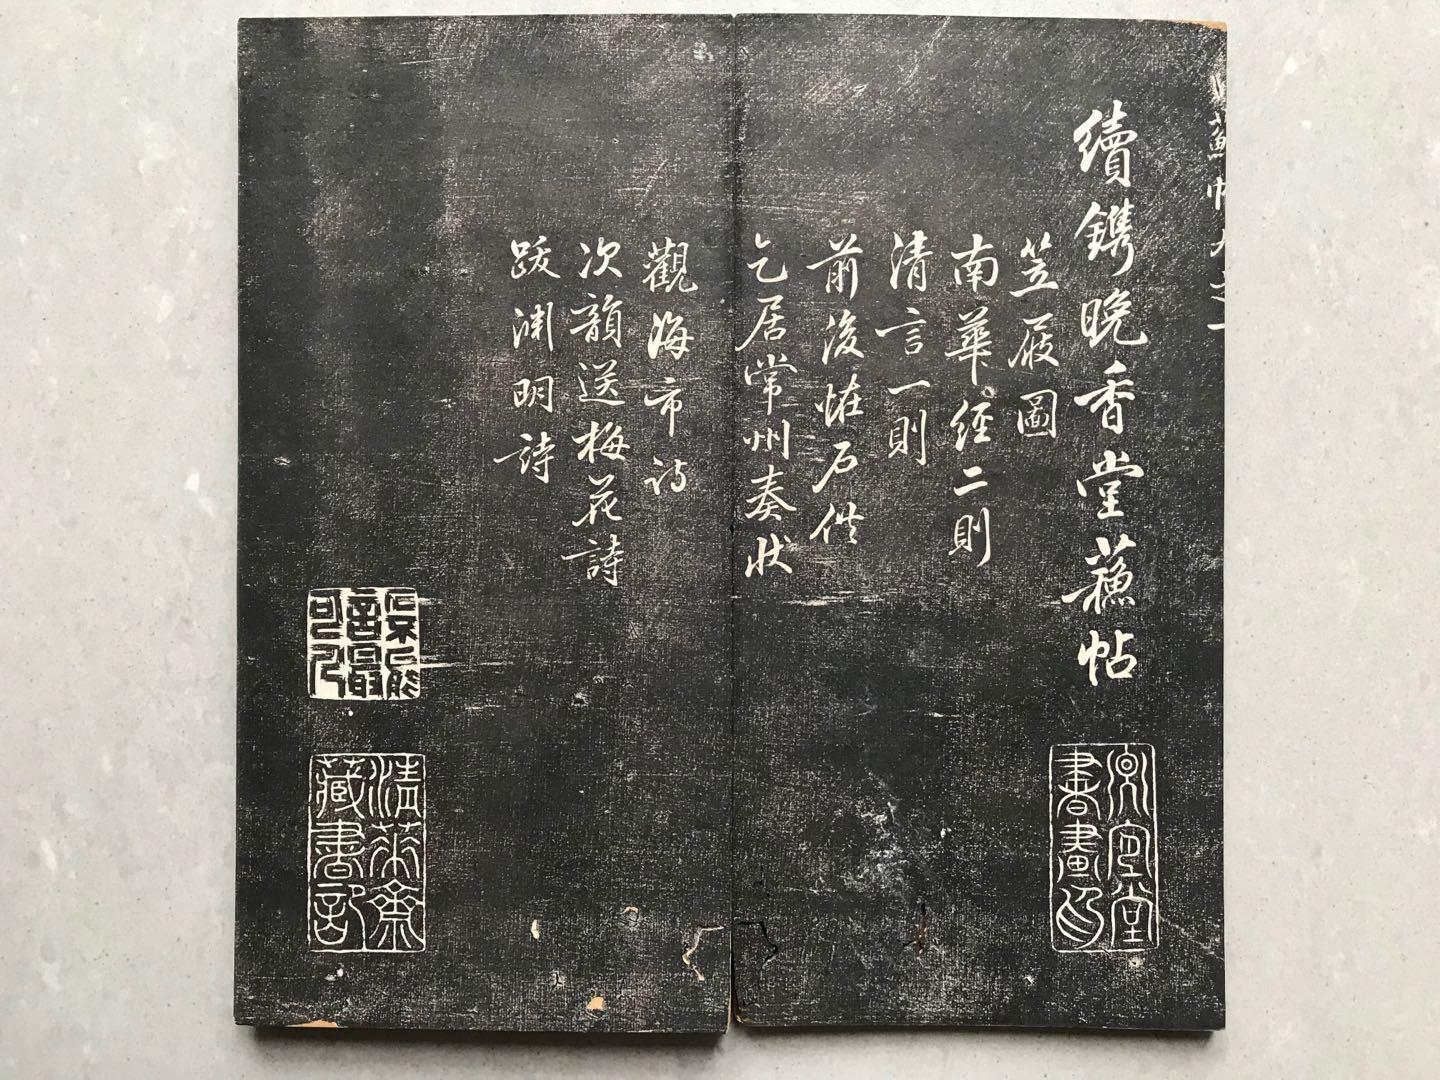 續鐫晚香堂蘇帖
笠屐圖
南華經二則
清言一則
前後怪石供
乞居常州奏狀
觀海市詩
次韻送梅花詩
跋淵明詩
書畫印
藏書記